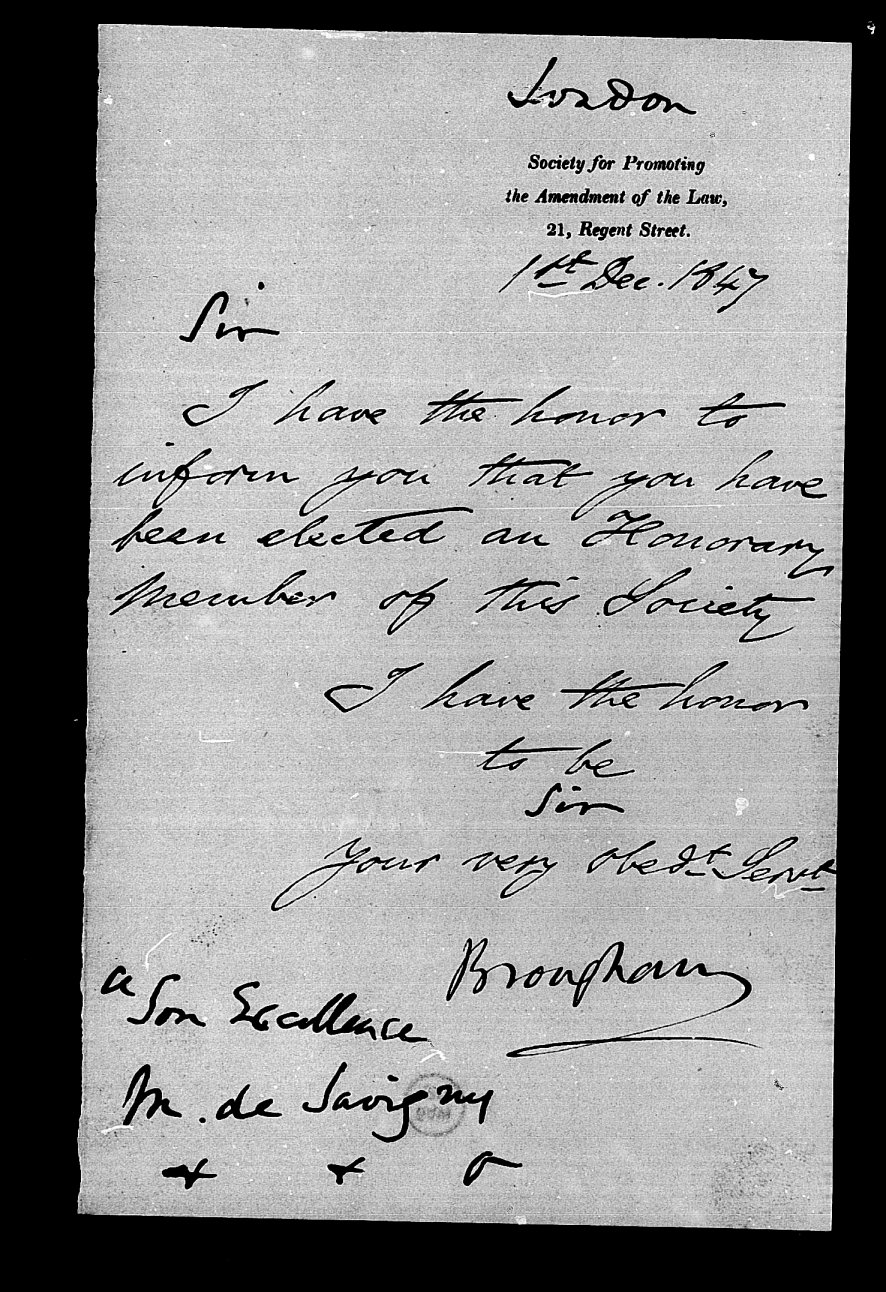 London
Society for Promoting
the Amendment of the Law,
21, Regent Street.
1st Dec. 1847
Sir
I have the honor to
inform you that you have
been elected an Honorary
Member of this Society
I have the honor
to be
Sir
Your very obedt Servt
Brougham
a Son Excellence
M. de Savigny